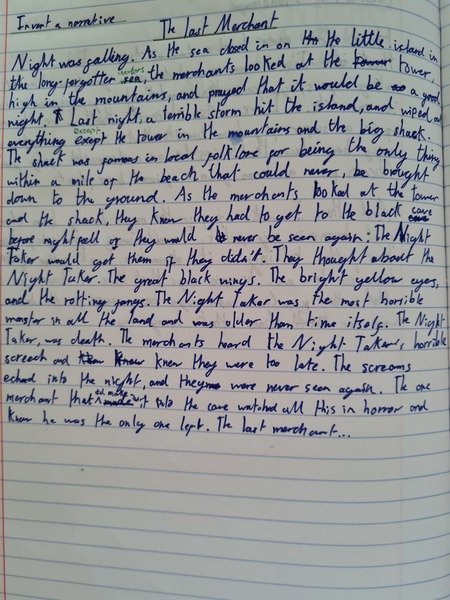 Invent a narrative
The Last Merchant
Night was falling. As the sea closed in on the little island in
the long-forgotten waters the merchants looked at the tower,
high in the mountains, and prayed that it would be a good
night. Last night, a terrible storm hit the island, and wiped out
everything except the tower in the mountains and the big shack.
The shack was famous in local folklore for being the only thing
within a mile of the beach that could never, be brought
down to the ground. As the merchants looked at the tower
and the shack, they knew they had to get to the black cave
before nightfall or they would never be seen again: The Night
Taker would get them if they didn't. They thought about the
Night Taker. The great black wings. The bright yellow eyes,
and the rotting fangs. The Night Taker was the most horrible
monster in all the land and was older than time itself. The Night
Taker, was death. The merchants heard the Night Taker's, horrible
screech and knew they were too late. The screams
echord into the night, and they were never seen again. The one
merchant that did make it into the cave watched all this in horror and
know he was the only one left. The last merchant...